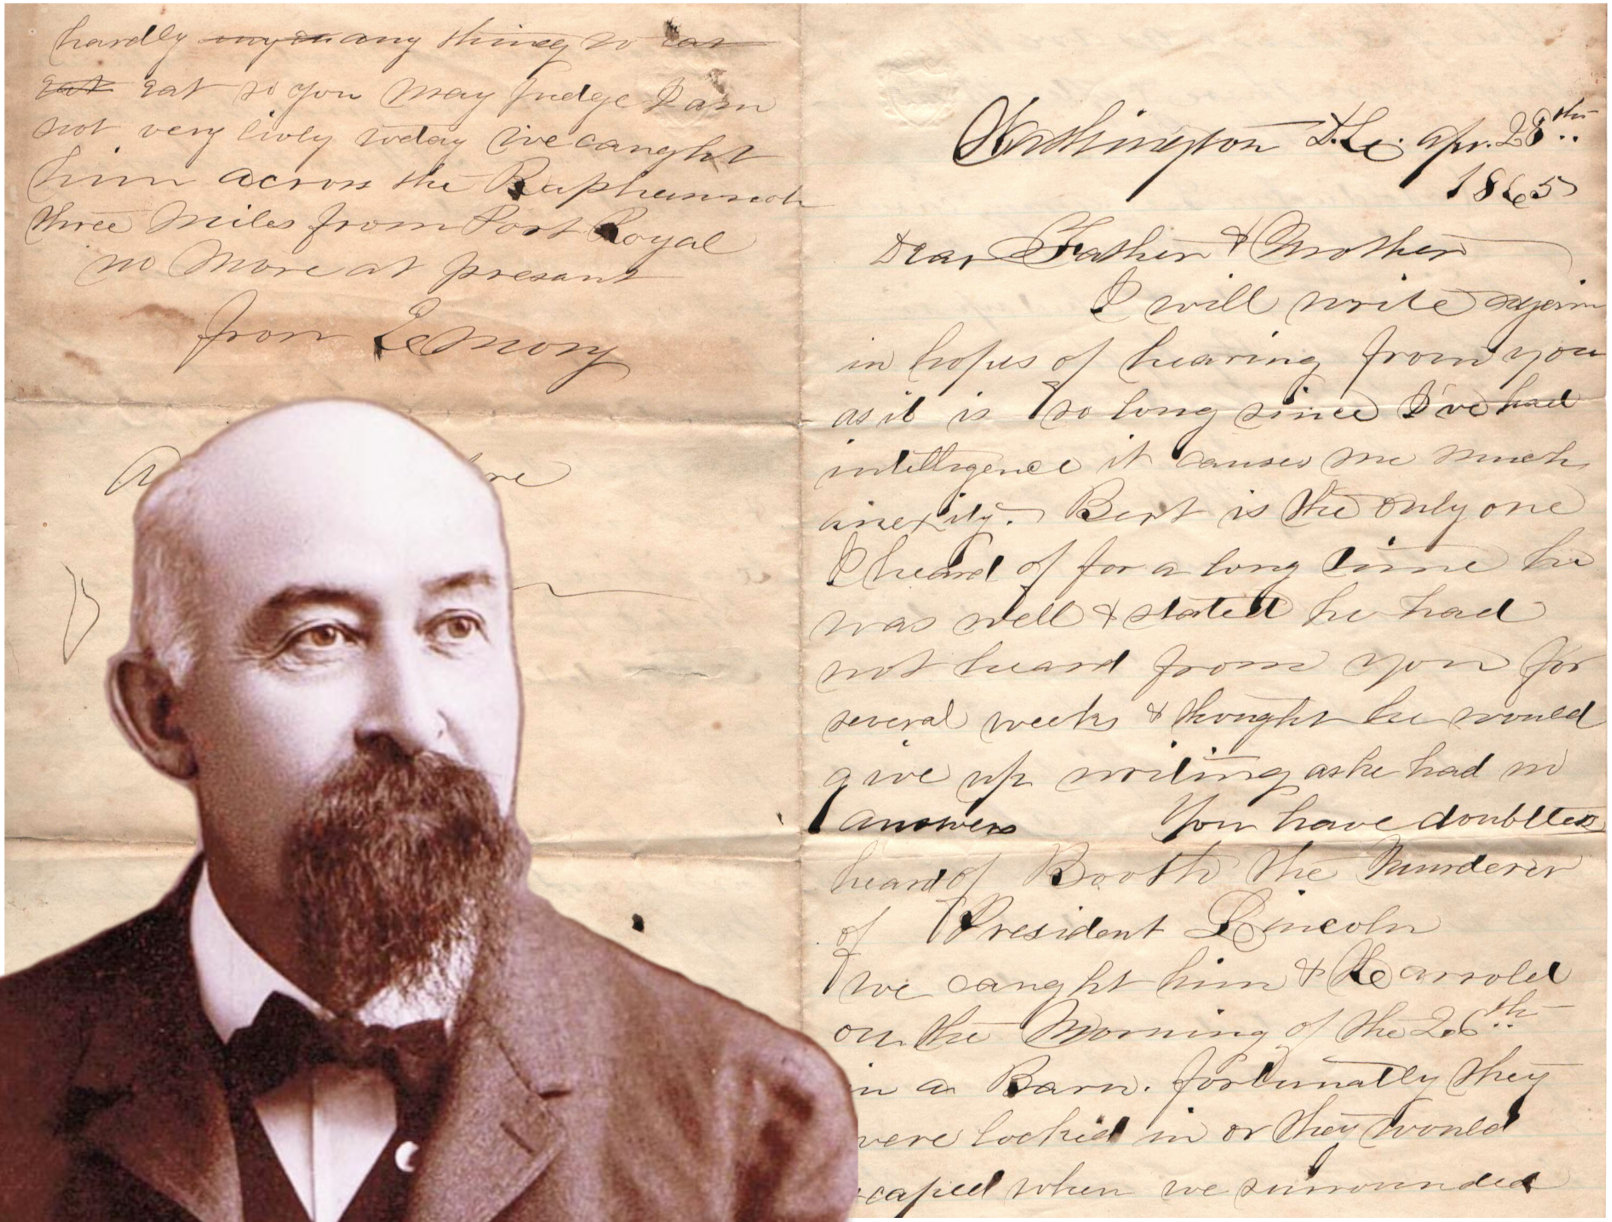 hardly any thing to eat
eat eat so you may Judge I am
not very livly today we caught
him across the Raphannock
three Miles from Port Royal
no More at presant
from Emory
Washington D.C. Apr. 28th
1865
Dear Father & Mother
I will write again
in hopes of hearing from you
as it is so long since I've had
intelligence it causes me much
Bert is the only one
I heard of for a long time he
was well & stated he had
not heard from you for
several weeks & thought he would
give up writing as he had no
answers You have doubtless
heard of Booth the Murderer
of President Lincoln
we caught him & Harrold
on the Morning of the 26th
in a Barn. fortunatly they
were locked in or they would
scaped when we surrounded